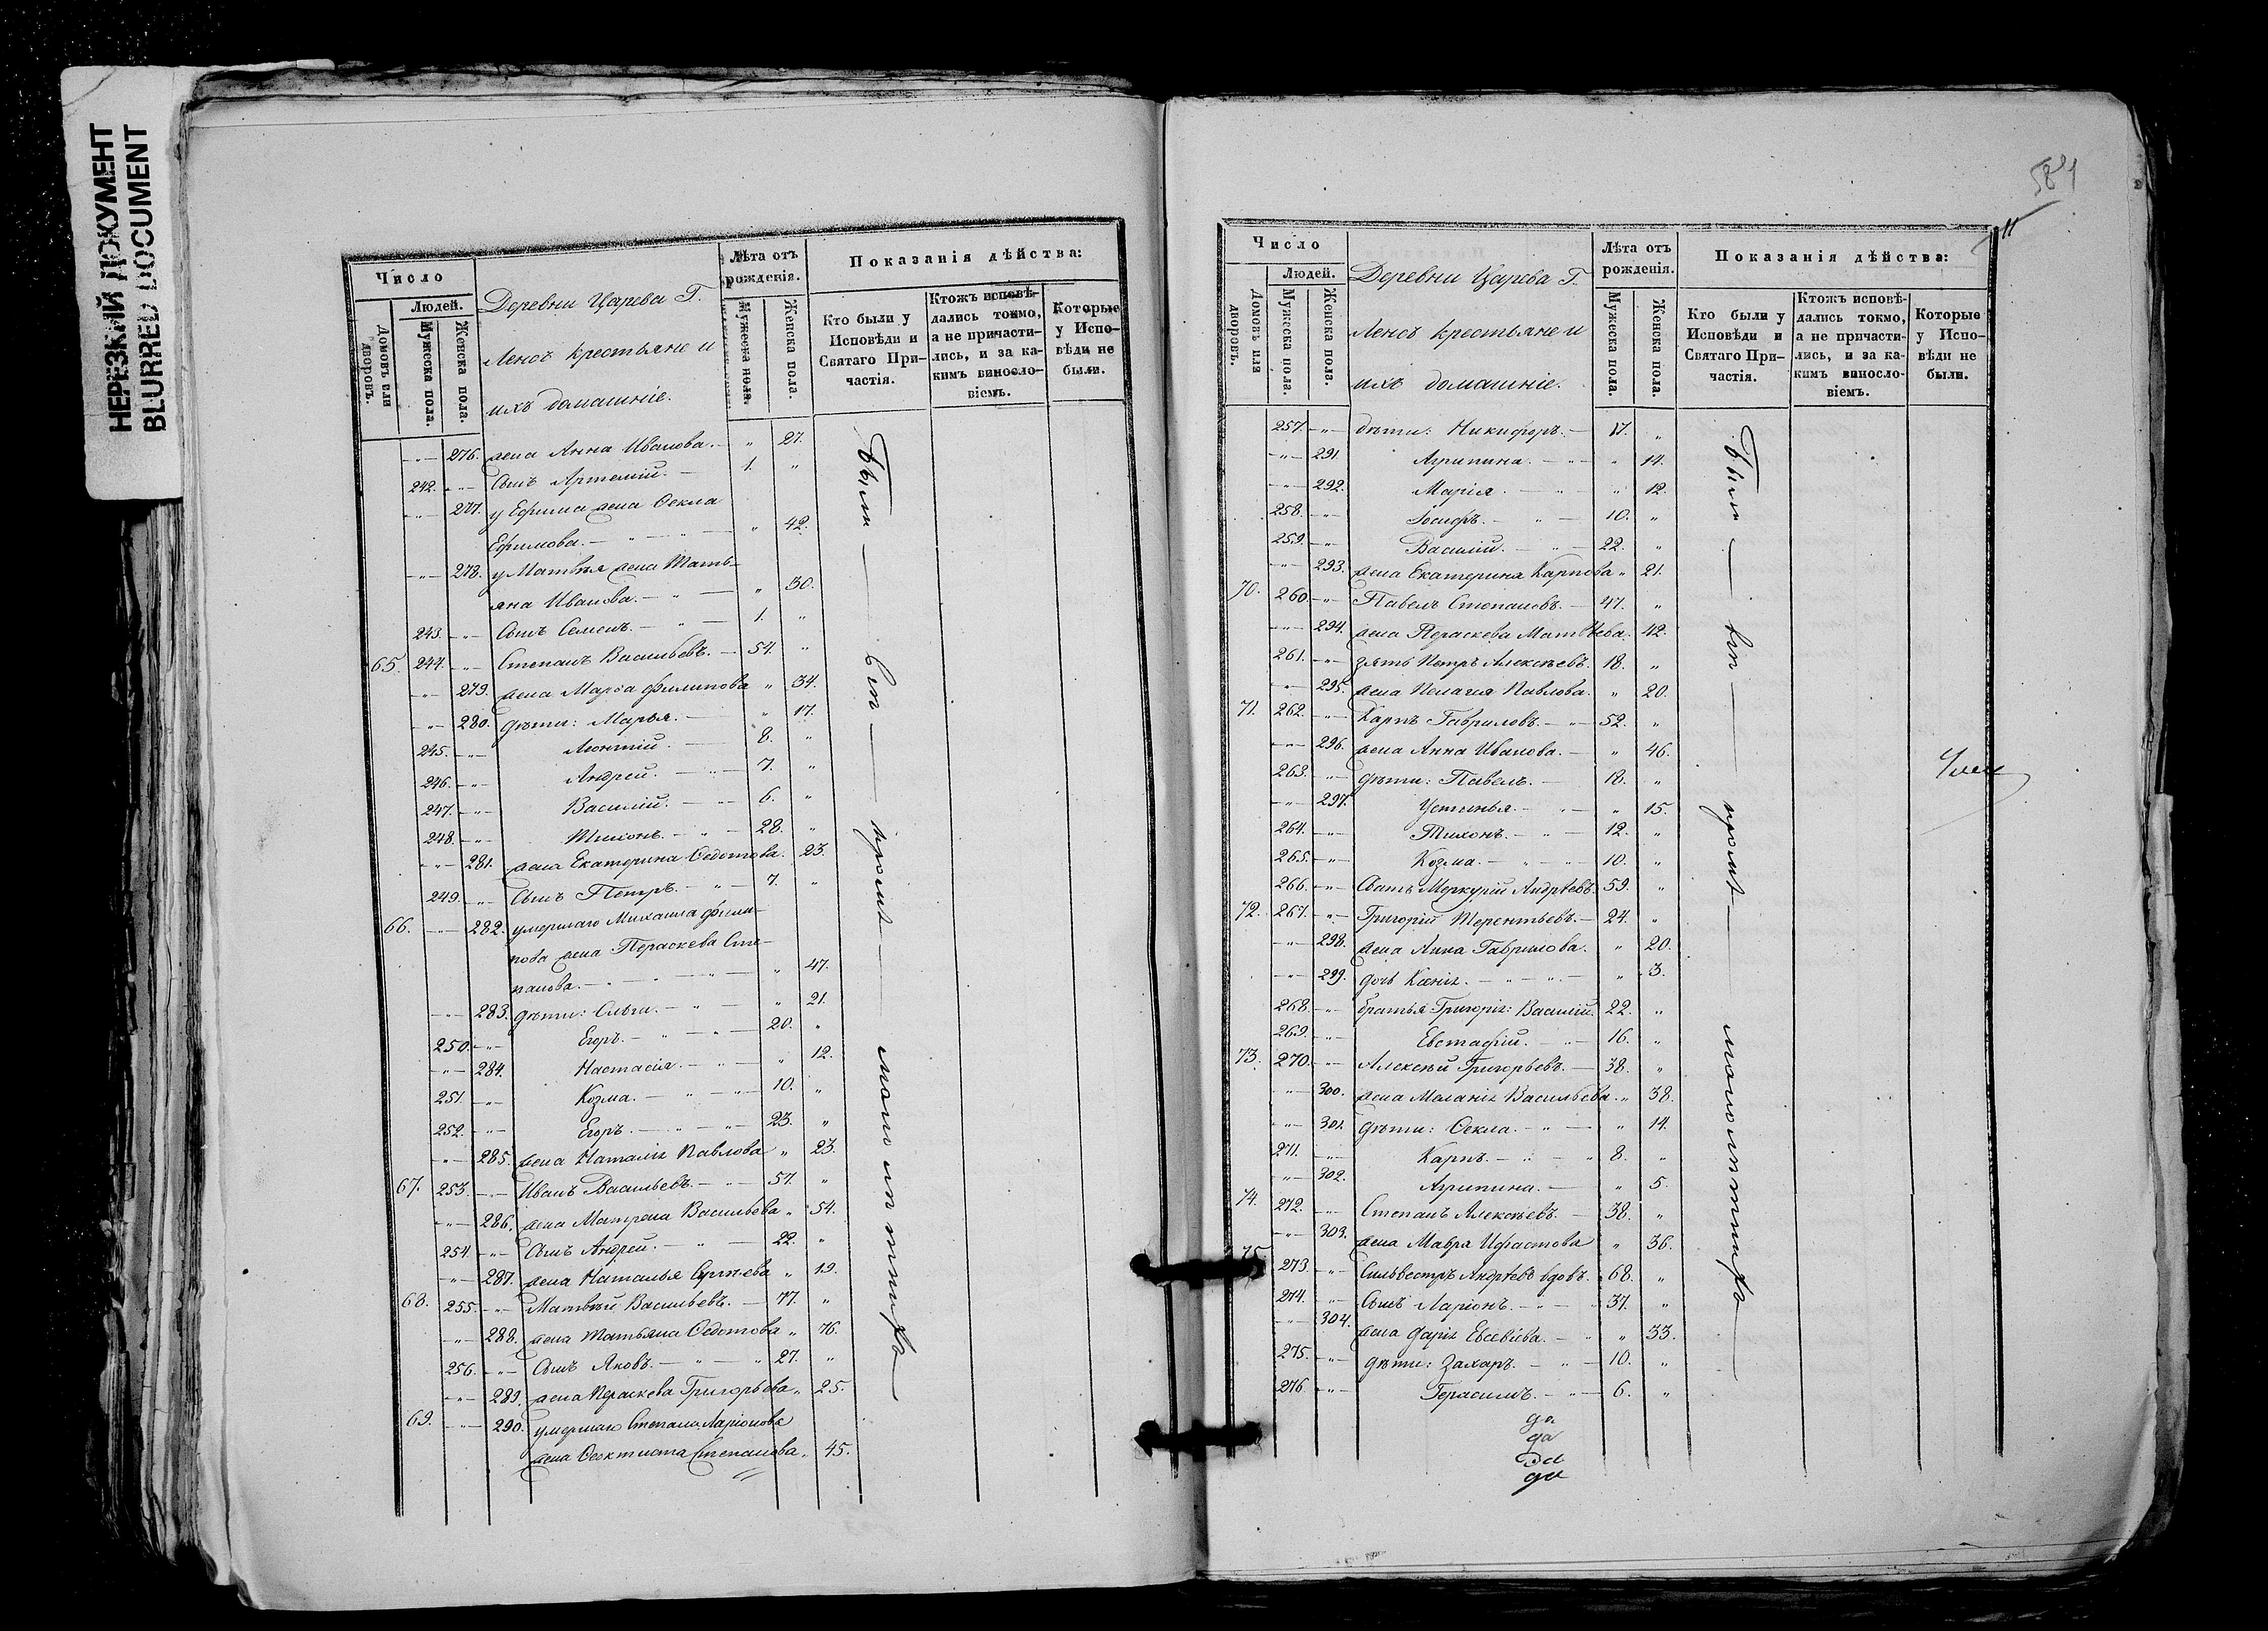 НЕРЕЗКИЙ ДОКУМЕНТ
BLURRED DOCUMENT
Число
Людей.
Домовъ или дворовъ.
Мужеска пола.
Женска пола.
Деревни Царева Г.
Ленсъ крестьяне и
ихъ домашніе.
Лѣта отъ рожденія.
Мужеска пола.
Женска пола.
Показанія дѣйства:
Кто были у Исповѣди и Святаго Причастія.
Ктожъ исповѣдались токмо, а не причастились, и за какимъ винословіемъ.
Которые у Исповѣди не были.
-"- 276. жена Анна Иванова. - " 27.
242. -"- Сынъ Артемій. - 1. "
-"- 277. у Ефима жена Ѳекла
Ефимова. - " - " 42.
-"- 278. у Матвѣя жена Тать-
яна Иванова. - " - " 30.
243. -"- Сынъ Семенъ. - " - 1. "
65. 244. -"- Степанъ Васильевъ. - 54. "
-"- 279. жена Марѳа Филипова " 34.
-"- 280. дѣти: Марья. - " 17.
245. -"- Леонтій. - 8. "
246. -"- Андрей. - " - 7. "
247. -"- Василій. - " - 6. "
248. -"- Тихонъ. - " - 28. "
-"- 281. жена Екатерина Ѳедотова. 23.
249. -"- Сынъ Петръ. - " - 7. "
66. -"- 282. умершаго Михаила Фили-
пова жена Пераскева Сте-
панова. - " - " - " 47.
-"- 283. дѣти: Ольга. - " - " 21.
250. -"- Егоръ. - " - " - 20. "
-"- 284. Настасія. - " - " 12.
251. -"- Козма. - " - " - 10. "
252. -"- Егоръ. - " - " - 23. "
-"- 285. жена Наталія Павлова " 23.
67. 253. -"- Иванъ Васильевъ. - " - 57. "
-"- 286. жена Матрена Васильева " 54.
254. -"- Сынъ Андрей. - " - 22. "
-"- 287. жена Наталья Сергѣева " 19.
68. 255. -"- Матвѣй Васильевъ. - 77. "
-"- 288. жена Татьяна Ѳедотова " 76.
256. -"- Сынъ Яковъ. - " - " 27. "
-"- 289. жена Пераскева Григорьева " 25.
69. -"- 290. умершаго Степана Ларіонова
жена Ѳеоктиста Степанова. " 45.
Были - въ
581
11
Число
Людей.
Домовъ или дворовъ.
Мужеска пола.
Женска пола.
Деревни Царева Г.
Ленсъ крестьяне и
ихъ домашніе.
Лѣта отъ рожденія.
Мужеска пола.
Женска пола.
Показанія дѣйства:
Кто были у Исповѣди и Святаго Причастія.
Ктожъ исповѣдались токмо, а не причастились, и за какимъ винословіемъ.
Которые у Исповѣди не были.
257. -"- дѣти: Никифоръ. - 17. "
-"- 291. Агрипина. - " - " 14.
-"- 292. Марія. - " - " 12.
258. -"- Іосифъ. - " - 10. "
259. -"- Василій. - " - 22. "
-"- 293. жена Екатерина Карпова " 21.
70. 260. -"- Павелъ Степановъ. - 47. "
-"- 294. жена Пераскева Матвѣева. 42.
261. -"- зять Петръ Алексѣевъ. 18. "
-"- 295. жена Пелагея Павлова. " 20.
71. 262. -"- Карпъ Гавриловъ. - " - 52. "
-"- 296. жена Анна Иванова. - " 46.
263. -"- дѣти: Павелъ. - 18. "
-"- 297. Устинья. - " - " 15.
264. -"- Тихонъ. - " - 12. "
265. -"- Козма. - " - " - 10. "
266. -"- Сватъ Меркурій Андрѣевъ. 59. "
72. 267. -"- Григорій Терентьевъ. - 24. "
-"- 298. жена Анна Гаврилова. " 20.
-"- 299. дочь Ксенія. - " - " - " 3.
268. -"- братья Григорія: Василій. 22. "
269. -"- Евстафій. - " - 16. "
73. 270. -"- Алексѣй Григорьевъ. - 38. "
-"- 300. жена Меланія Васильева. " 38.
-"- 301. дѣти: Ѳекла. - " - " 14.
271. -"- Карпъ. - " - " 8. "
-"- 302. Агрипина. - " 5.
74. 272. -"- Степанъ Алексѣевъ. - 38. "
-"- 303. жена Мавра " 36.
75. 273. -"- Сильвестръ Андрѣевъ вдовъ. 68. "
274. -"- Сынъ Ларіонъ. - " - 37. "
-"- 304. жена Дарія Евсевіева. - " " 33.
275. -"- дѣти: Захаръ. - " - 10. "
276. -"- Герасимъ. - " - 6. "
да
да
да
да
Были - въ